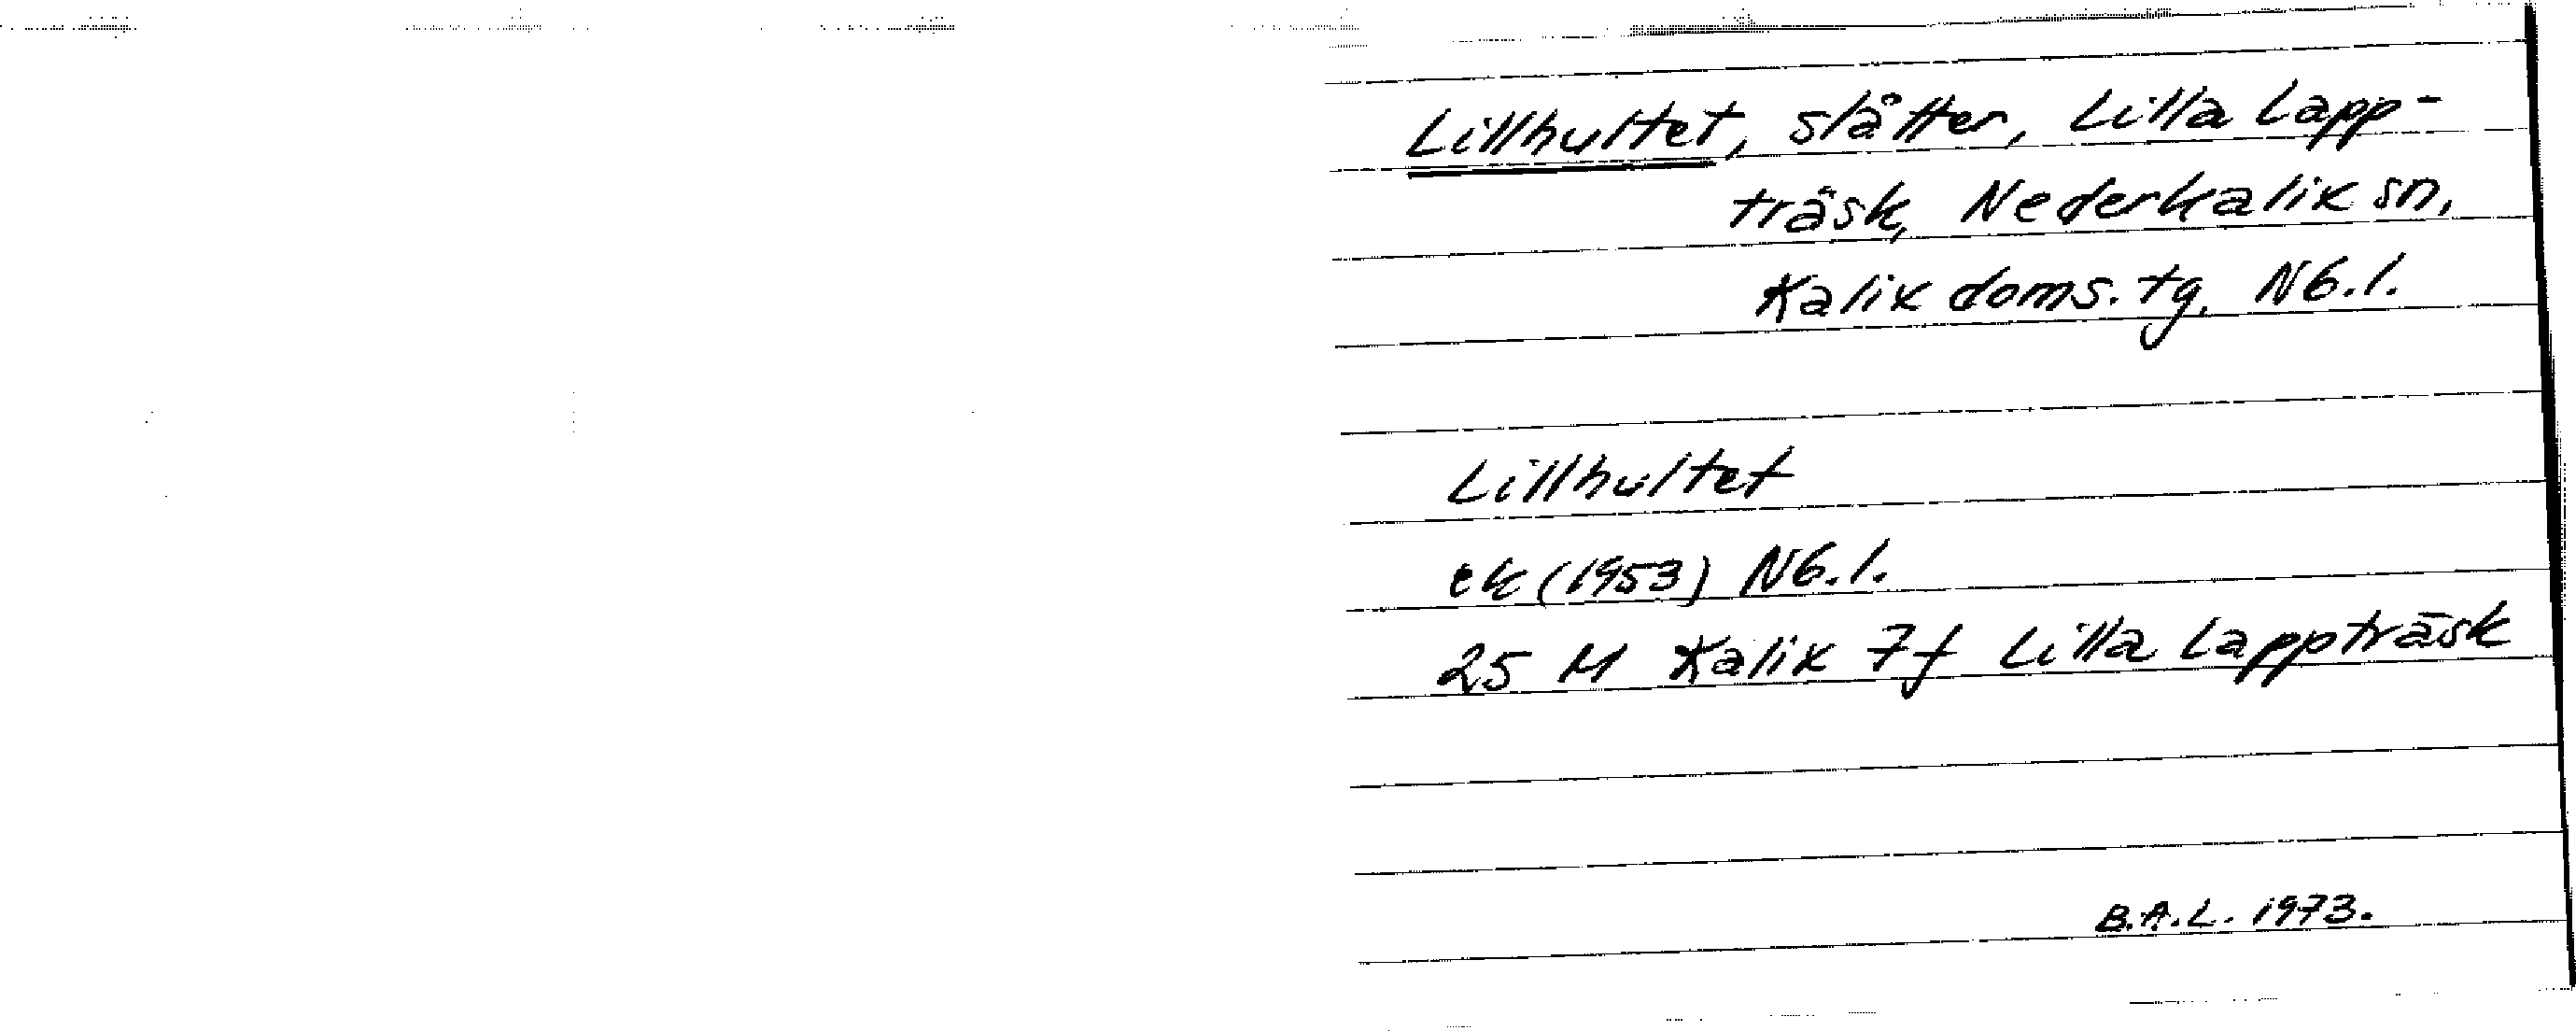 Lillhultet, slåtter, Lilla Lapp-
träsk, Nederkalix sn,
Kalix doms. tg. Nb. l.
Lillhultet
ek (1953) Nb. l.
25 M Kalix 7f Lilla Lappträsk
B.A.L. 1973.